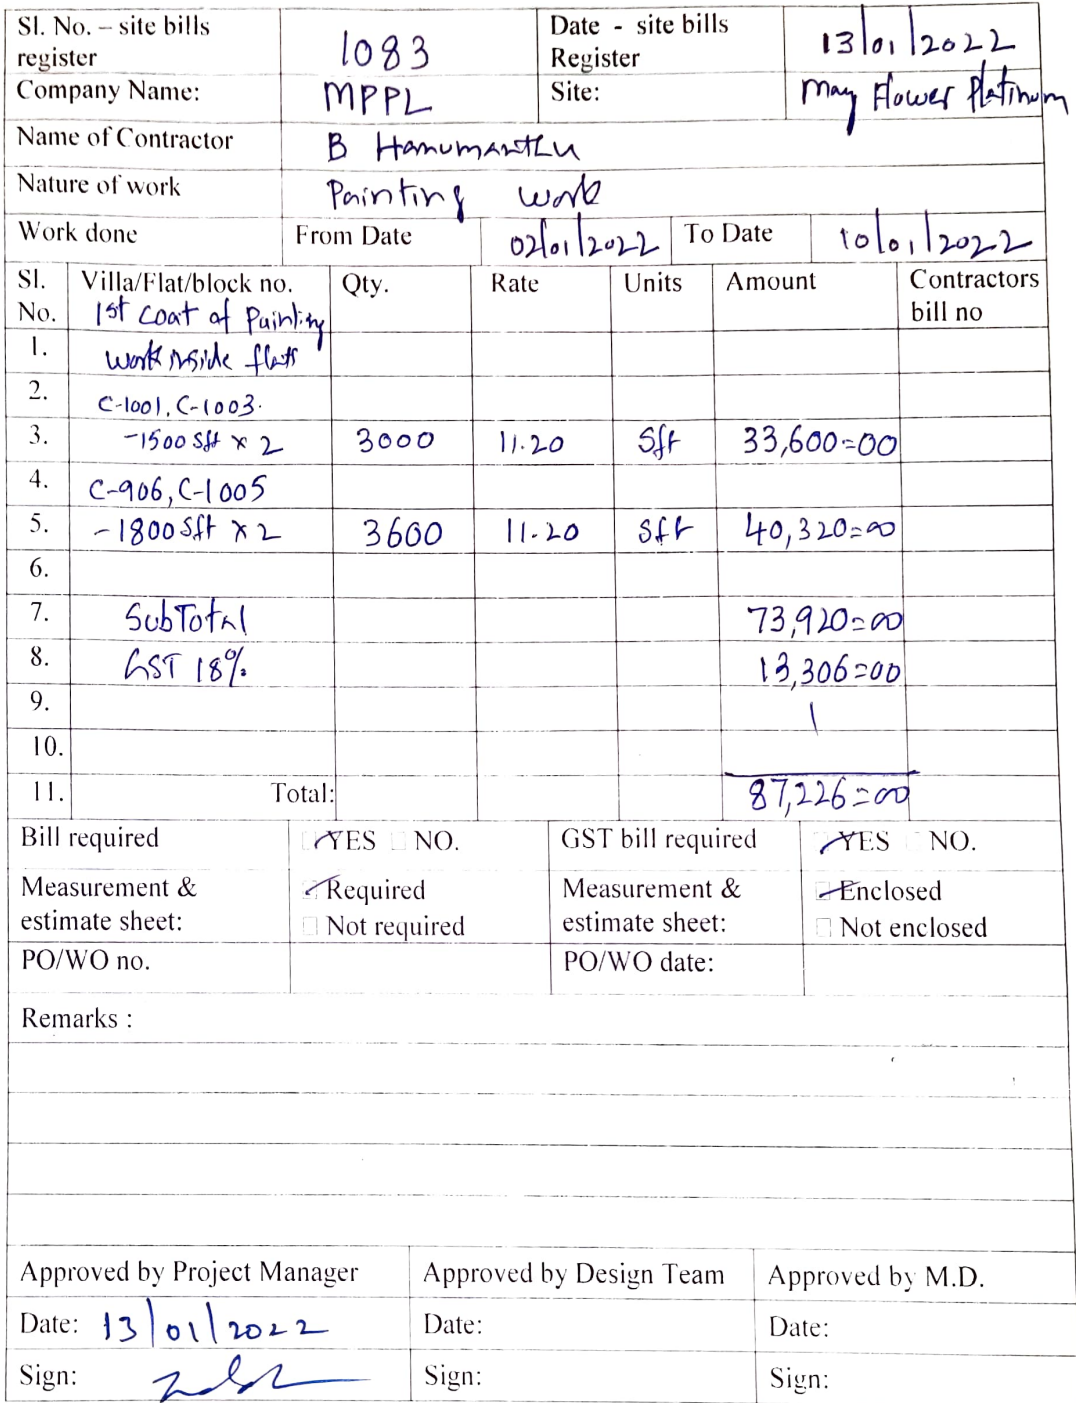 Sl. No. – site bills register 1083 Date - site bills Register 13/01/2022
Company Name: MPPL Site: May Flower Platinum
Name of Contractor B Hanumanthu
Nature of work Painting work
Work done From Date 02/01/2022 To Date 10/01/2022
Sl. No. Villa/Flat/block no. Qty. Rate Units Amount Contractors bill no
1st coat of Painting
1. work inside flats
2. C-1001, C-1003.
3. -1500 sft x 2 3000 11.20 Sft 33,600=00
4. C-906, C-1005
5. -1800 sft x 2 3600 11.20 Sft 40,320=00
6.
7. SubTotal 73,920=00
8. GST 18% 13,306=00
9.
10.
11. Total: 87,226=00
Bill required YES NO. GST bill required YES NO.
Measurement & estimate sheet: Required Not required Measurement & estimate sheet: Enclosed Not enclosed
PO/WO no. PO/WO date:
Remarks :
Approved by Project Manager Approved by Design Team Approved by M.D.
Date: 13/01/2022 Date: Date:
Sign: Sign: Sign: